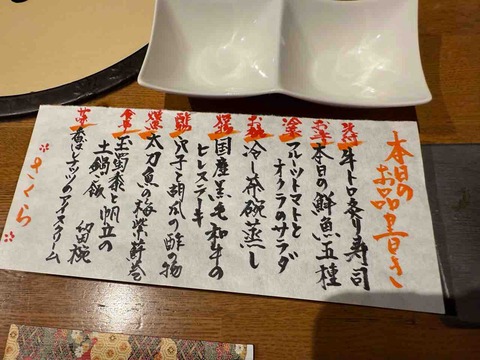 本日の
お品書き
先付 牛トロ炙り寿司
お造り 本日の鮮魚五種
冷菜 フルーツトマトと
オクラのサラダ
お椀 冷し茶碗蒸し
焼物 国産黒毛和牛の
ヒレステーキ
酢物 穴子と胡瓜の酢の物
太刀魚の梅紫蘇巻
食事 玉蜀黍と帆立の
土鍋ご飯 留椀
ナッツのアイスクリーム
さくら